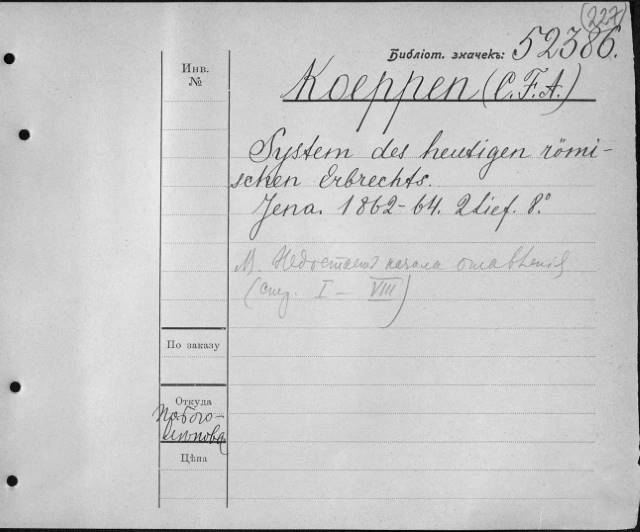 (227)
Библіот. значекъ: 52386.
Инв. №
Koeppen (C. F. A.)
System des heutigen römi-
schen Erbrechts.
Jena. 1862-64. 2 Lief. 8.°
Недостает начала оглавления
(стр. I – VIII)
По заказу
Откуда
Цѣна